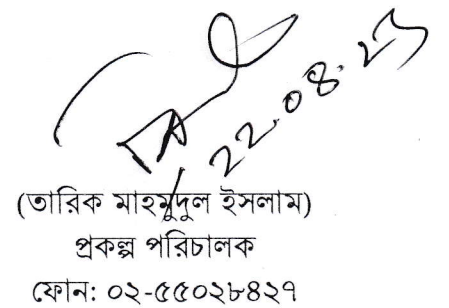 (তারিক মাহমুদুল ইসলাম)
প্রকল্প পরিচালক
ফোন: ০২-৫৫০২৮৪২৭